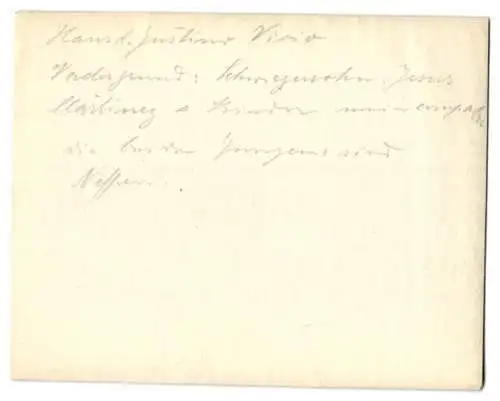 Haus d. Justino Vicio
Vordergrund: Schwiegersohn Jesus
Martinez & Kinder mein compadre
die beiden Jungens sind
Neffen.